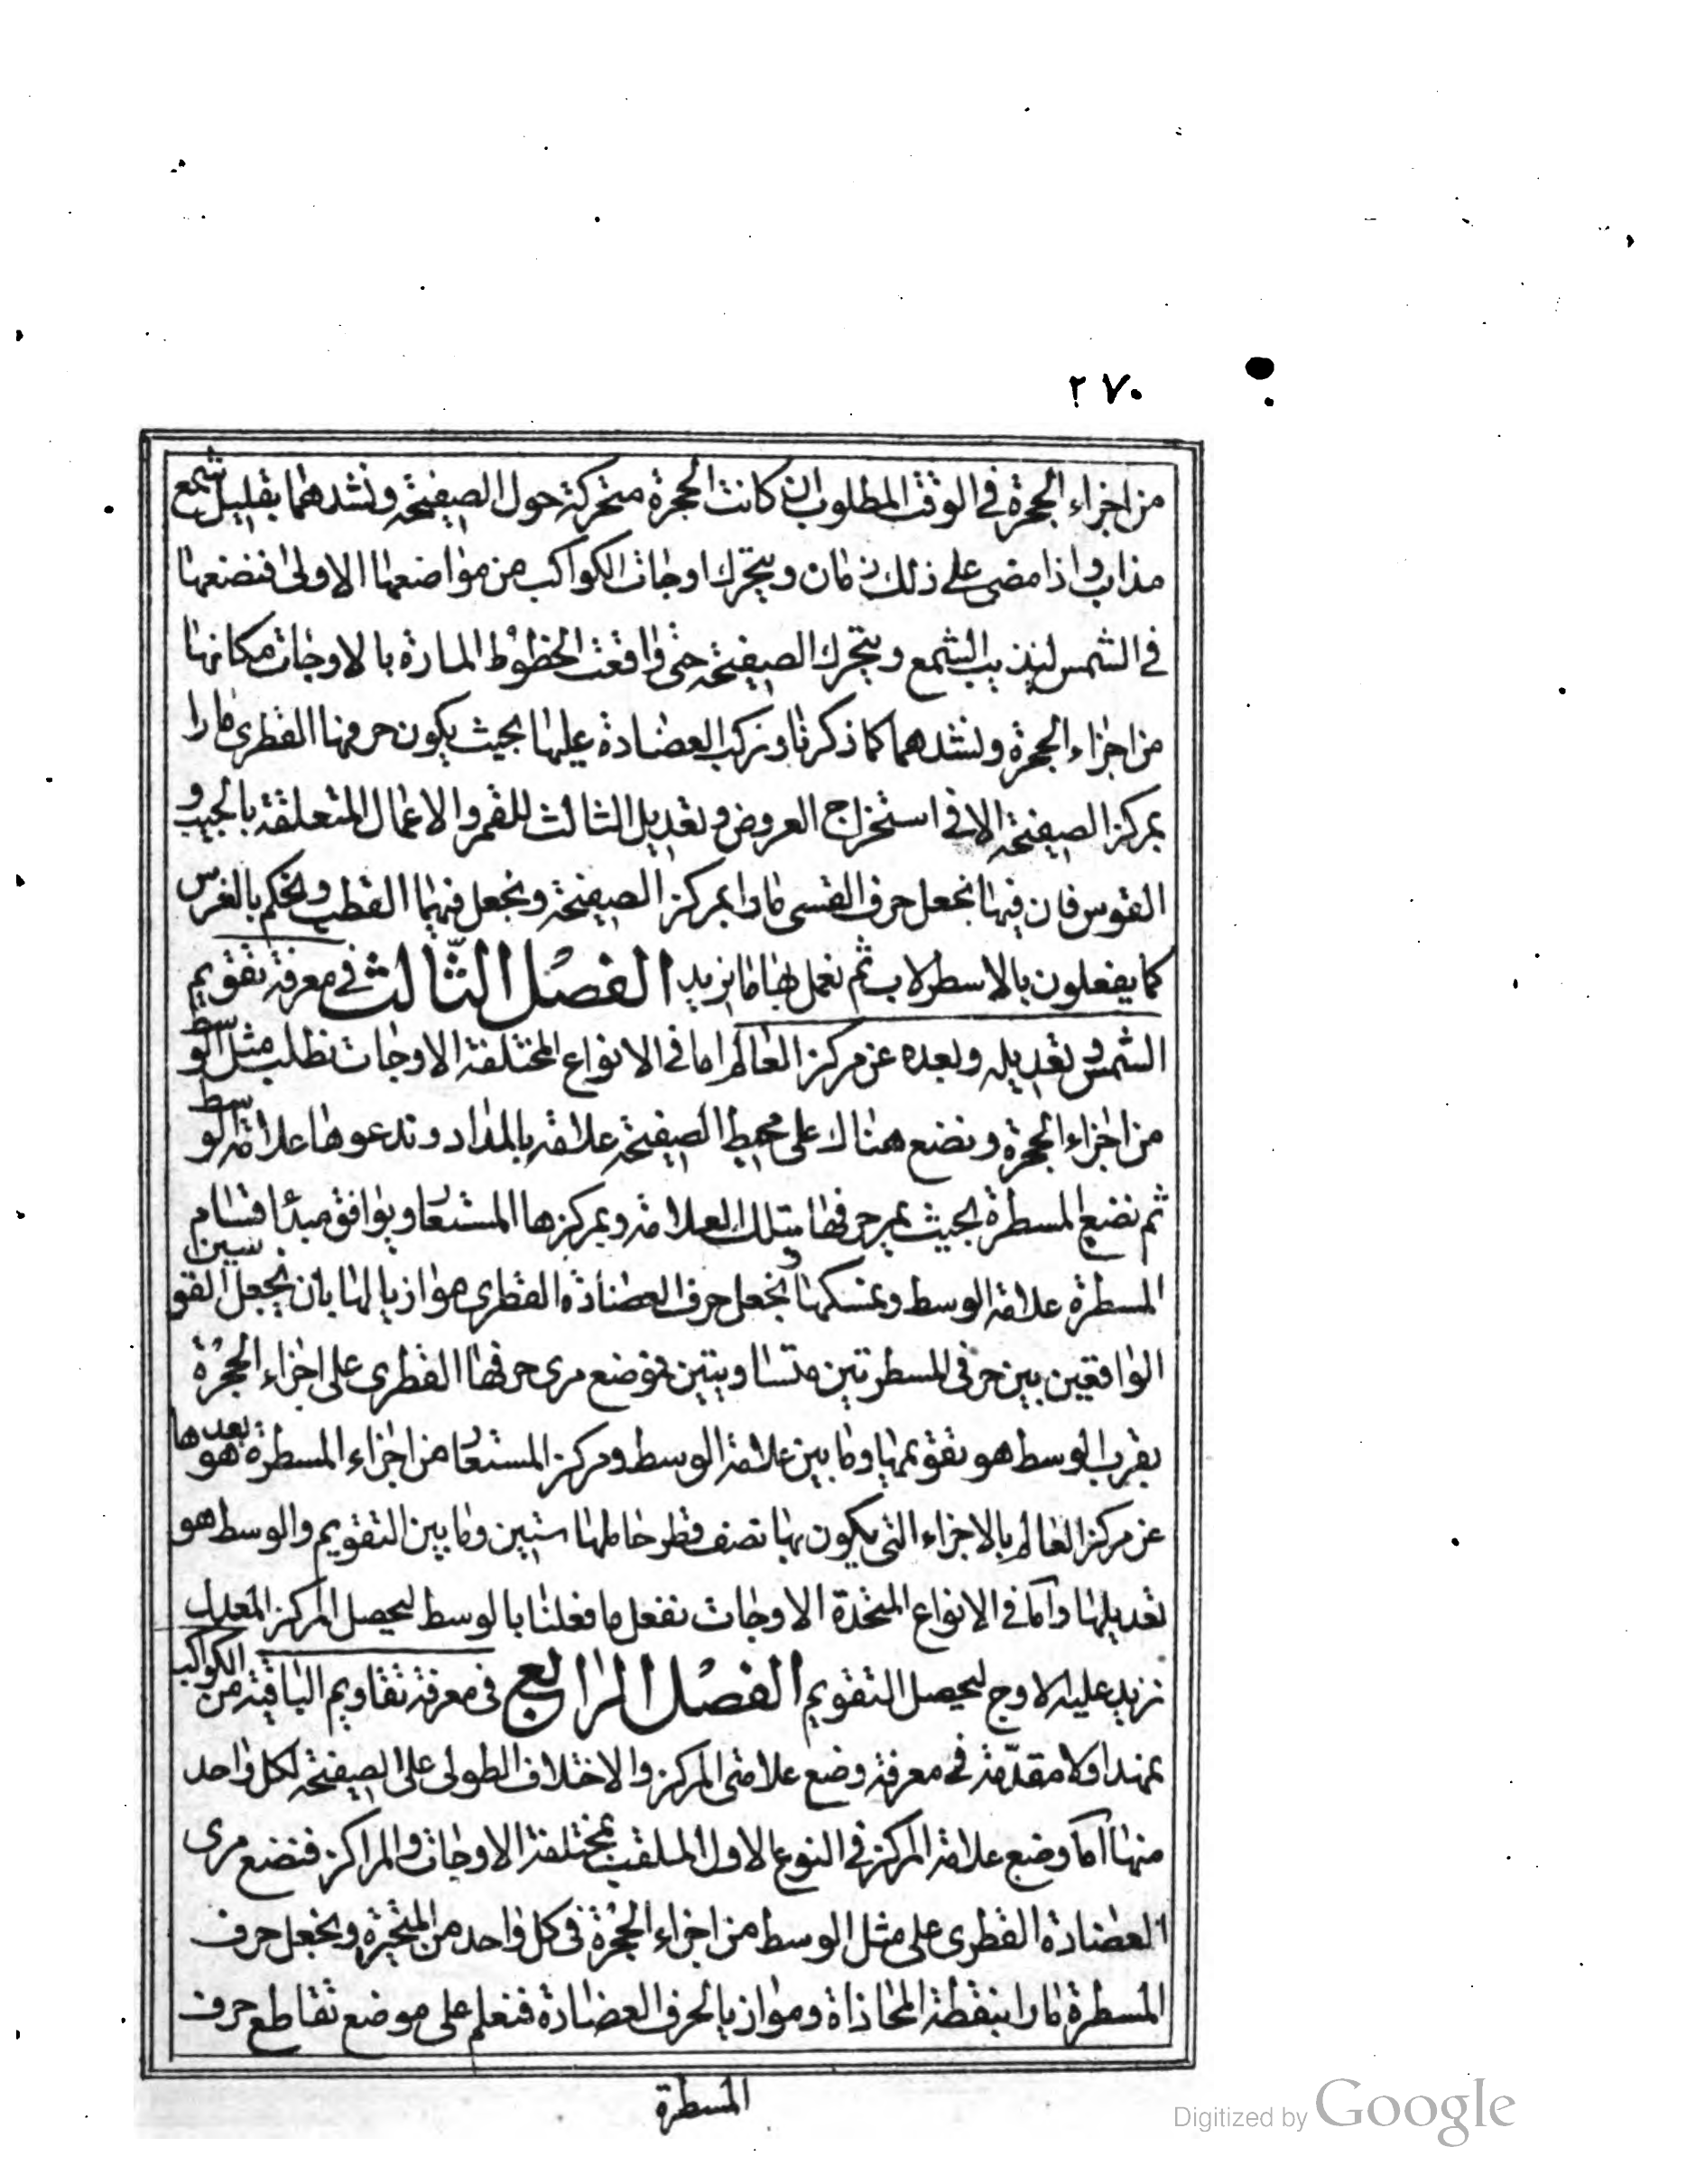 ٢٧٠
من اجزاء الحجرة في الوقت المطلوب ان كانت الحجرة متحركة حول الصفيحة ونشدهما بقليل شمع
مذاب واذا مضى على ذلك زمان ويتحرك اوجات الكواكب من مواضعها الاولى فنضعها
في الشمس ليذيب الشمع ويتحرك الصفيحة حتى وافقت الخطوط المارة بالاوجات مكانها
من اجزاء الحجرة ونشدهما كما ذكرنا ونركب العضادة عليها بحيث يكون حرفها القطرى مارا
بمركز الصفيحة الا في استخراج العروض وتعديل الثالث للقمر والاعمال المتعلقة بالجيب و
القوس فان فيها نجعل حرف القسى مارا بمركز الصفيحة ونجعل فيهما القطب ونحكم بالفرس
كما يفعلون بالاسطرلاب ثم نعمل بها ما نريد الفصل الثالث في معرفة تقويم
الشمس وتعديله وبعده عن مركز العالم اما في الانواع المختلفة الاوجات نطلب مثل الوسط
من اجزاء الحجرة ونضع هناك على محيط الصفيحة علامة بالمداد وندعوها علامة الوسط
ثم نضع المسطرة بحيث يمر حرفها بتلك العلامة وبمركزها المستعار ويوافق مبدأ اقسام
المسطرة علامة الوسط ونمسكها ونجعل حرف العضادة القطرى موازيا لها بان يجعل القوسين
الواقعين بين حرفى المسطرتين متساويتين فموضع مرى حرفها القطرى على اجزاء الحجرة
بقرب الوسط هو تقويمها وما بين علامة الوسط ومركز المستعار من اجزاء المسطرة هو بعدها
عن مركز العالم بالاجزاء التى يكون بها نصف قطر حاملها ستين وما بين التقويم والوسط هو
تعديلها واما في الانواع المتحدة الاوجات نفعل ما فعلنا بالوسط ليحصل المركز المعدل
نزيد عليه الاوج ليحصل التقويم الفصل الرابع في معرفة تقاويم الباقية من الكواكب
نمهد اولا مقدّمة في معرفة وضع علامتى المركز والاختلاف الطولى على الصفيحة لكل واحد
منها اما وضع علامة المركز في النوع الاول الملقب بمختلفة الاوجات والمراكز فنضع مرى
العضادة القطرى على مثل الوسط من اجزاء الحجرة في كل واحد من المتحيرة ونجعل حرف
المسطرة مارا بنقطة المحاذاة وموازيا لحرف العضادة فنعلم على موضع تقاطع حرف
المسطرة
Digitized by Google